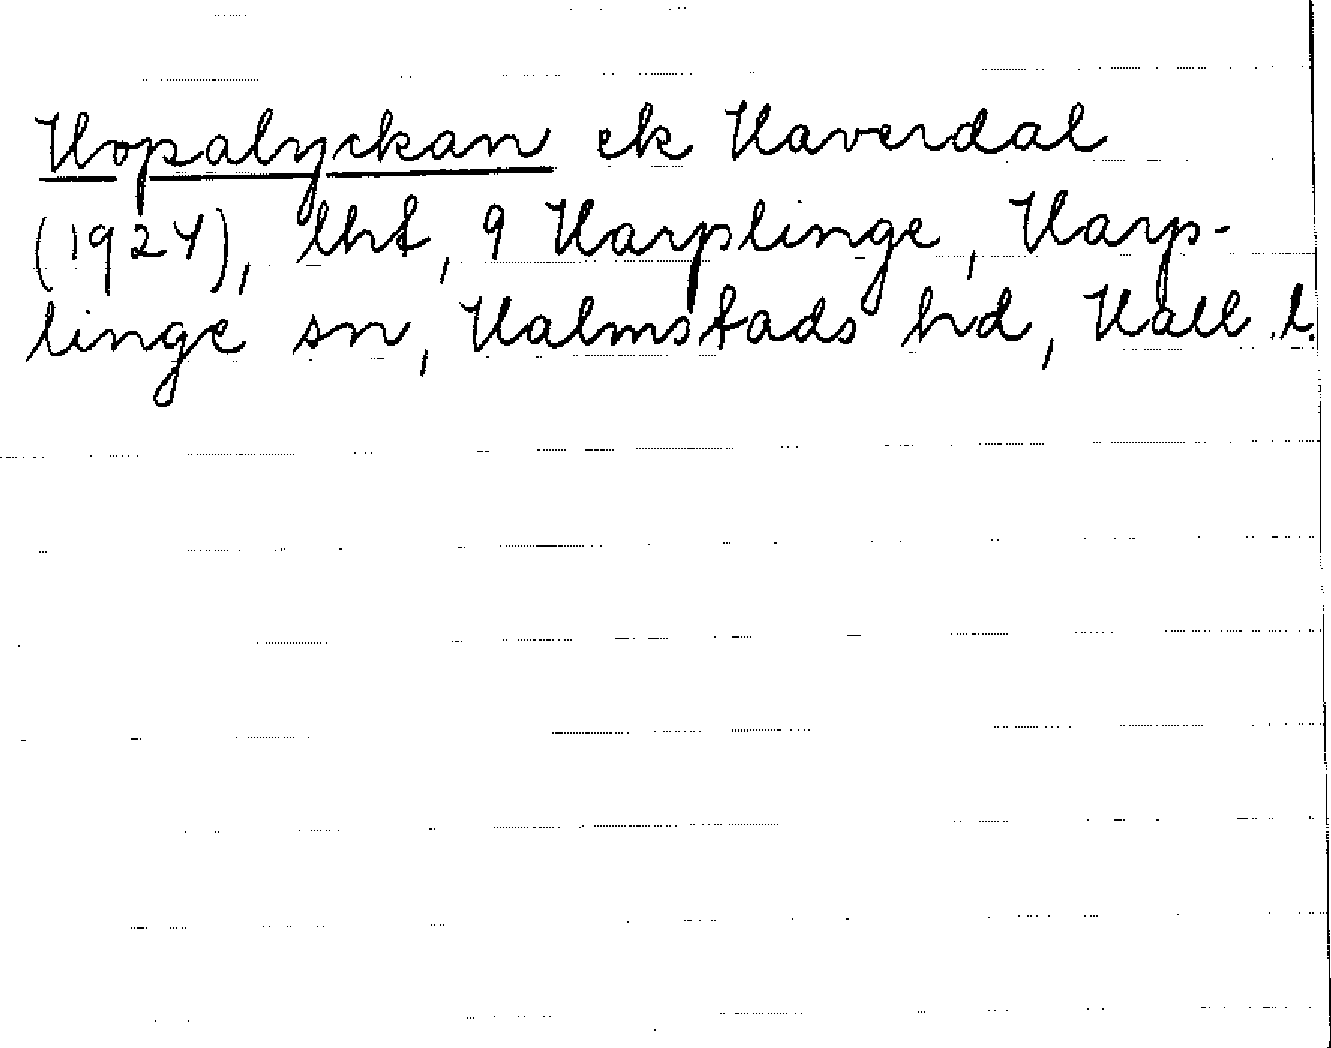 Hopalyckan ek Haverdal
(1924), lht, 9 Harplinge, Harp-
linge sn, Halmstads hd, Hall l.